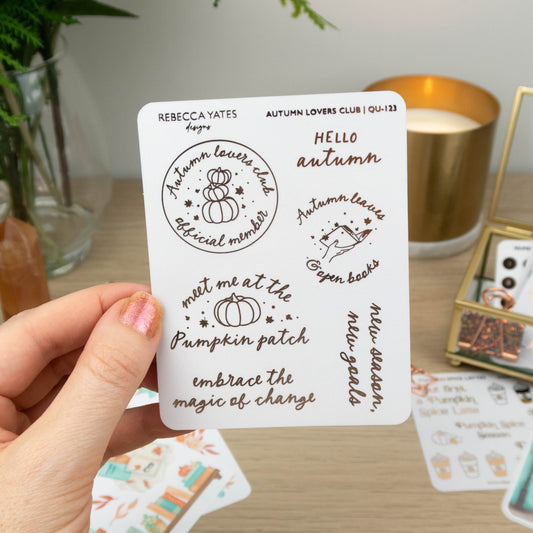 REBECCA YATES
designs
AUTUMN LOVERS CLUB | QU-123
Autumn lovers club
official member
HELLO
autumn
Autumn leaves
& open books
meet me at the
Pumpkin patch
new season,
new goals
embrace the
magic of change
Pumpkin
Spice Latte
Pumpkin Spice
Season